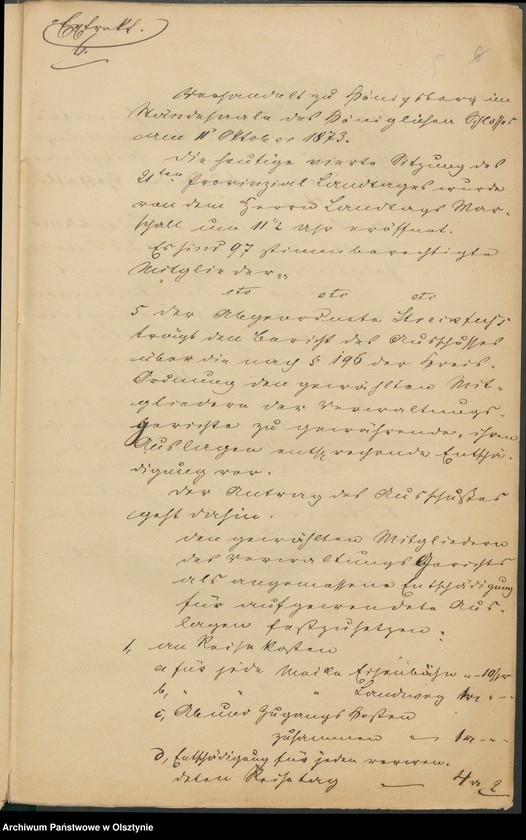 Extrakt.
8
Verhandelt zu Königsberg im
Ständesaale des Königlichen Schlosses
am 11t Oktober 1873.
Die heutige vierte Sitzung des
21ten Provinzial Landtages wurde
von dem Herrn Landtags Mar-
schall um 11 1/2 Uhr eröffnet.
Es sind 97 stimmberechtigte
Mitglieder
etc etc etc
5 der Abgeordnete
trägt den Bericht des Ausschusses
über die nach § 196 der Kreis-
Ordnung den gewählten Mit-
gliedern der Verwaltungs-
gerichte zu gewährende, ihren
Auslagen entsprechende Entschä-
digung vor.
Der Antrag des Ausschußes
geht dahin:
den gewählten Mitgliedern
des Verwaltungs Gerichts
als angemessene Entschädigung
für aufgewendete Aus-
lagen festzusetzen:
1, an Reisekosten
a für jede Meile Eisenbahn - 10 Sgr
b, " " " Landweg 1
c, Ab und Zugangs Kosten
zusammen 1
d, Entschädigung für jeden verwen-
deten Reisetag 4
2
Archiwum Państwowe w Olsztynie